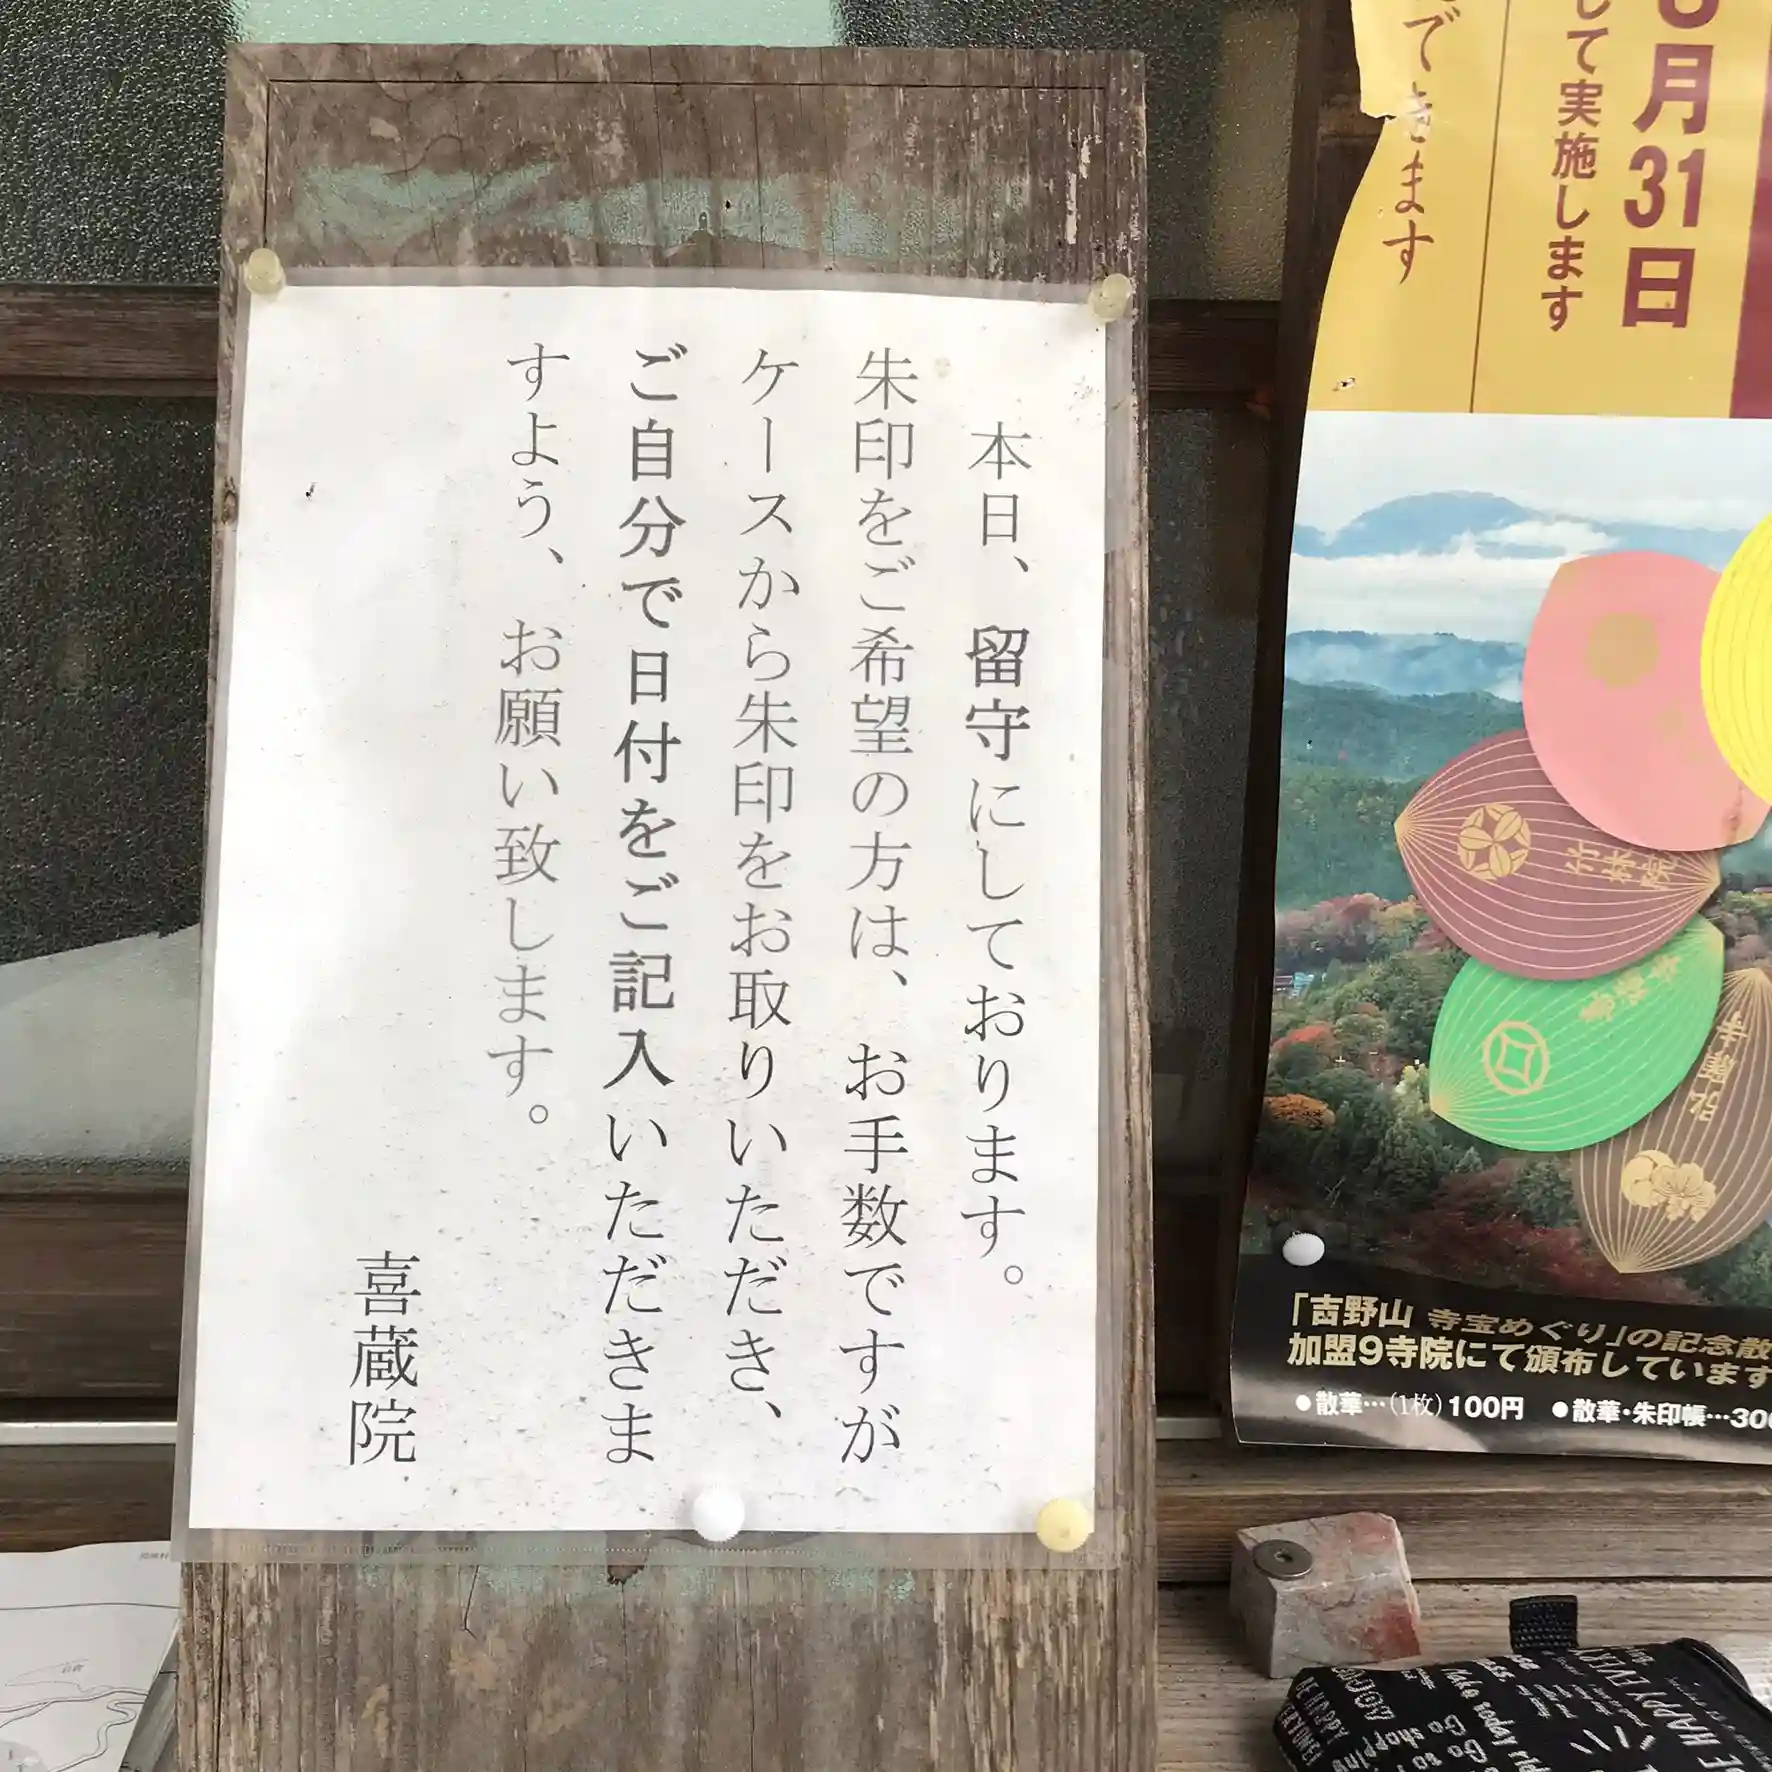 本日、留守にしております。
朱印をご希望の方は、お手数ですが
ケースから朱印をお取りいただき、
ご自分で日付をご記入いただきま
すよう、お願い致します。
喜蔵院
月31日
して実施します
できます
竹林院
喜蔵院
「吉野山 寺宝めぐり」の記念散
加盟9寺院にて頒布しています
●散華…(1枚)100円 ●散華・朱印帳…300
BE HAPPY
Go shopping